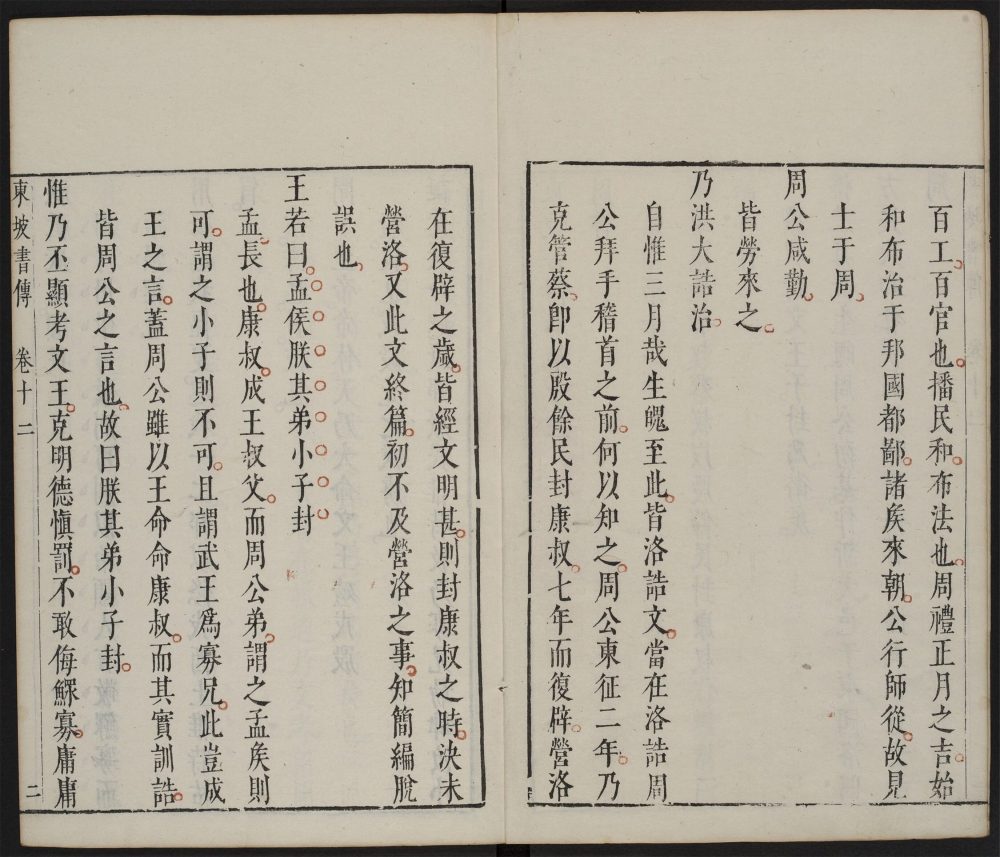 百工百官也播民和布法也周禮正月之吉始
和布治于邦國都鄙諸侯來朝公行師從故見
士于周
周公咸勤
皆勞來之
乃洪大誥治
自惟三月哉生魄至此皆洛誥文當在洛誥周
公拜手稽首之前何以知之周公東征二年乃
克管蔡卽以殷餘民封康叔七年而復辟營洛
在復辟之歲皆經文明甚則封康叔之時決未
營洛又此文終篇初不及營洛之事知簡編脫
誤也
王若曰孟侯朕其弟小子封
孟長也康叔成王叔父而周公弟謂之孟侯則
可謂之小子則不可且謂武王爲寡兄此豈成
王之言蓋周公雖以王命命康叔而其實訓誥
皆周公之言也故曰朕其弟小子封
惟乃丕顯考文王克明德愼罰不敢侮鰥寡庸庸
東坡書傳 卷十二 二